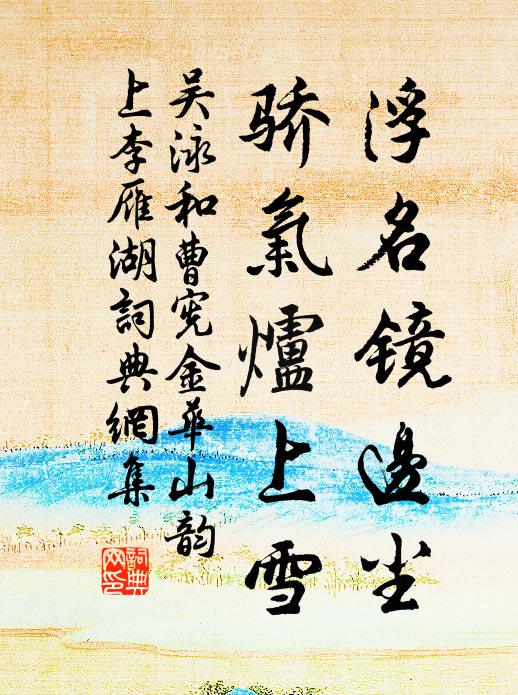 浮名镜边尘
骄氣爐上雪
吴泳和曹宪金华山韵
上李雁湖詞典網集
詞典网印